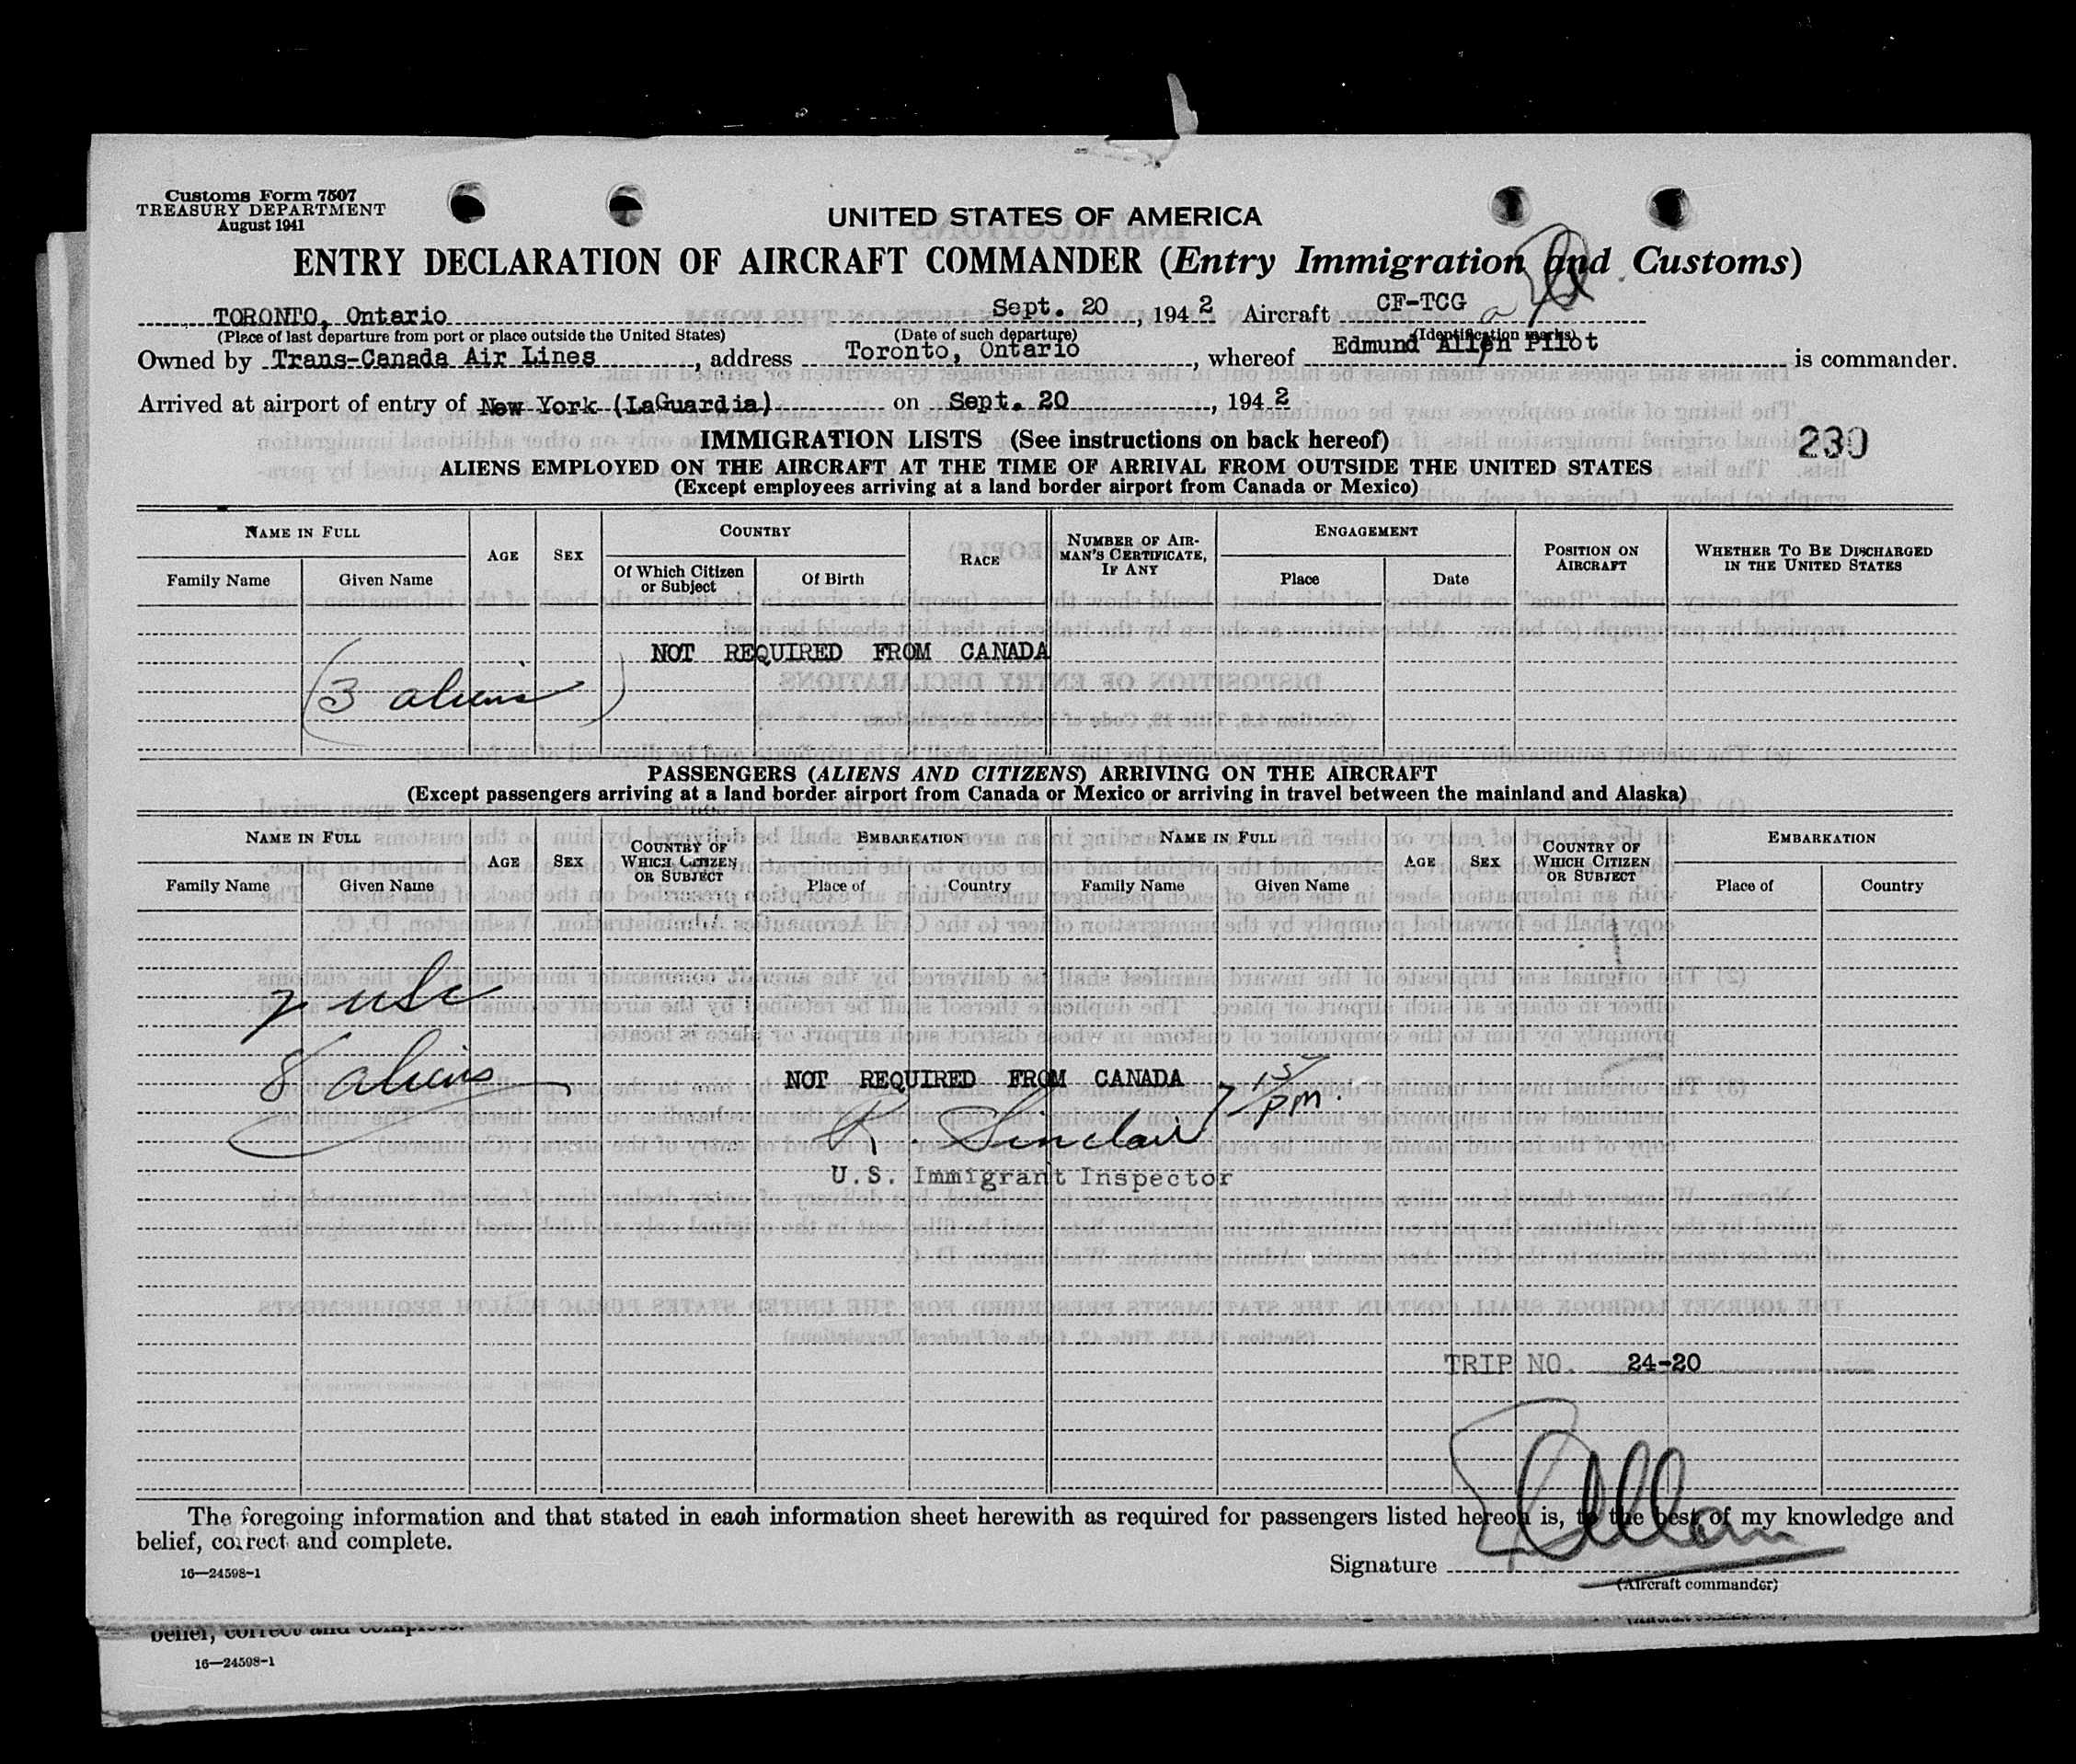 Customs Form 7507
TREASURY DEPARTMENT
August 1941
UNITED STATES OF AMERICA
ENTRY DECLARATION OF AIRCRAFT COMMANDER (Entry Immigration and Customs)
TORONTO, Ontario Sept. 20, 1942 Aircraft CF-TCG
(Place of last departure from port or place outside the United States) (Date of such departure) (Identification marks)
Owned by Trans-Canada Air Lines, address Toronto, Ontario, whereof Edmund Allen Pilot is commander.
Arrived at airport of entry of New York (LaGuardia) on Sept. 20, 1942
IMMIGRATION LISTS (See instructions on back hereof) 230
ALIENS EMPLOYED ON THE AIRCRAFT AT THE TIME OF ARRIVAL FROM OUTSIDE THE UNITED STATES
(Except employees arriving at a land border airport from Canada or Mexico)
NAME IN FULL AGE SEX COUNTRY RACE NUMBER OF AIRMAN'S CERTIFICATE, IF ANY ENGAGEMENT POSITION ON AIRCRAFT WHETHER TO BE DISCHARGED IN THE UNITED STATES
Family Name Given Name Of Which Citizen or Subject Of Birth Place Date
NOT REQUIRED FROM CANADA
(3 aliens)
PASSENGERS (ALIENS AND CITIZENS) ARRIVING ON THE AIRCRAFT
(Except passengers arriving at a land border airport from Canada or Mexico or arriving in travel between the mainland and Alaska)
NAME IN FULL AGE SEX COUNTRY OF WHICH CITIZEN OR SUBJECT EMBARKATION NAME IN FULL AGE SEX COUNTRY OF WHICH CITIZEN OR SUBJECT EMBARKATION
Family Name Given Name Place of Country Family Name Given Name Place of Country
7 usc
8 aliens
NOT REQUIRED FROM CANADA 7 15 pm.
R. Sinclair
U.S. Immigrant Inspector
TRIP NO. 24-20
The foregoing information and that stated in each information sheet herewith as required for passengers listed hereon is, to the best of my knowledge and
belief, correct and complete.
Signature E Allan
(Aircraft commander)
16—24598-1
belief, correct and complete.
16—24598-1